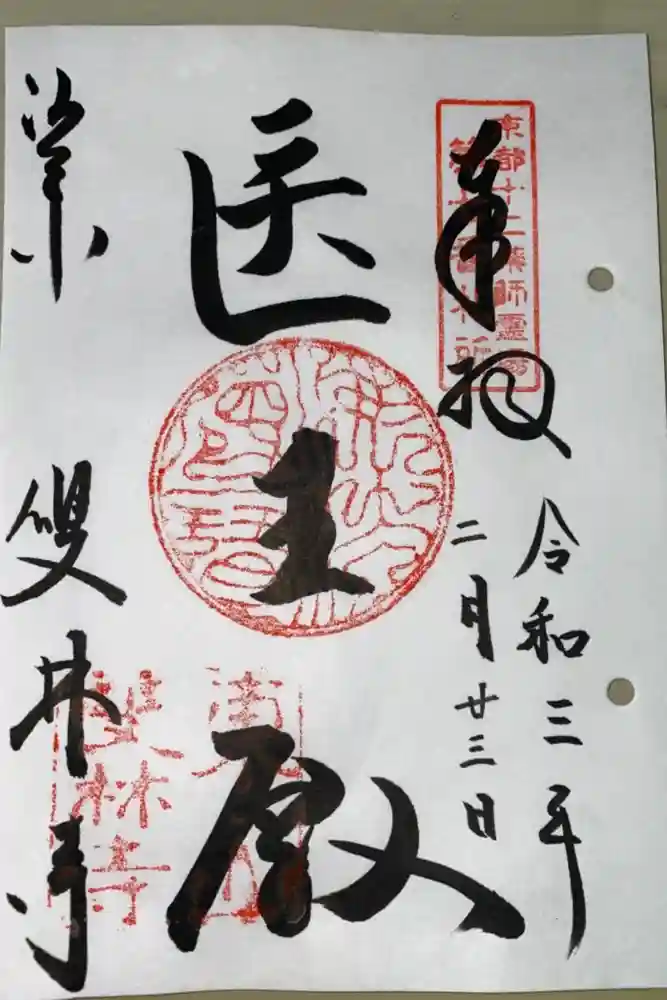 京都十二薬師霊場
第七番札所
奉拝
令和三年
二月廿三日
医王殿
雙林寺
雙林寺